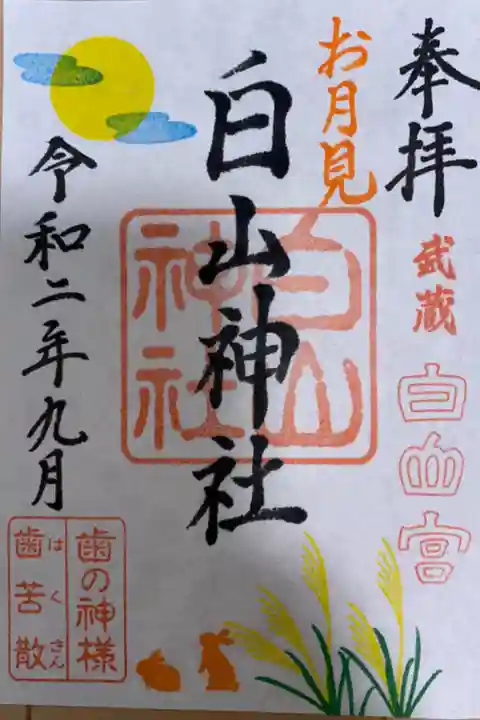 奉拝
武蔵
白山宮
お月見
白山神社
白山
神社
令和二年九月
歯の神様
歯苦散
はくさん